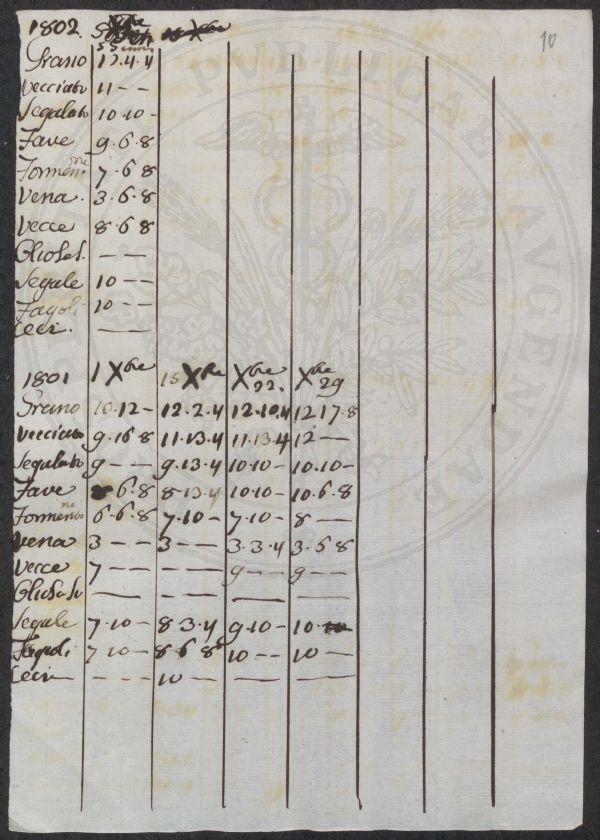 10
1802.
Grano 12.4.4
Vecciato 11 – –
Segalato 10.10 –
Fave 9.6.8
Formen.ne 7.6.8
Vena. 3.6.8
Vecce 8.6.8
– –
Segale 10 – –
Fagoli 10 – –
Ceci. —
1801 1 Xbre 15 Xbre Xbre 22. Xbre 29
Grano 10.12 – 12.2.4 12.10.4 12.17.8
Vecciato 9.16.8 11.13.4 11.13.4 12 —
Segalato 9 – – 9.13.4 10.10 – 10.10 –
Fave 6.8 8.13.4 10.10 – 10.6.8
Formento.ne 6.6.8 7.10 – 7.10 – 8 —
Vena 3 – – 3 — 3.3.4 3.6.8
Vecce 7 — – – – 9 – – 9 – –
— – – — —
Segale 7.10 – 8.3.4 9.10 – 10.
Fagoli 7.10 – 8.6.8 10 – – 10 —
Ceci – – – 10 —
PUBLICAE AUGENDAE